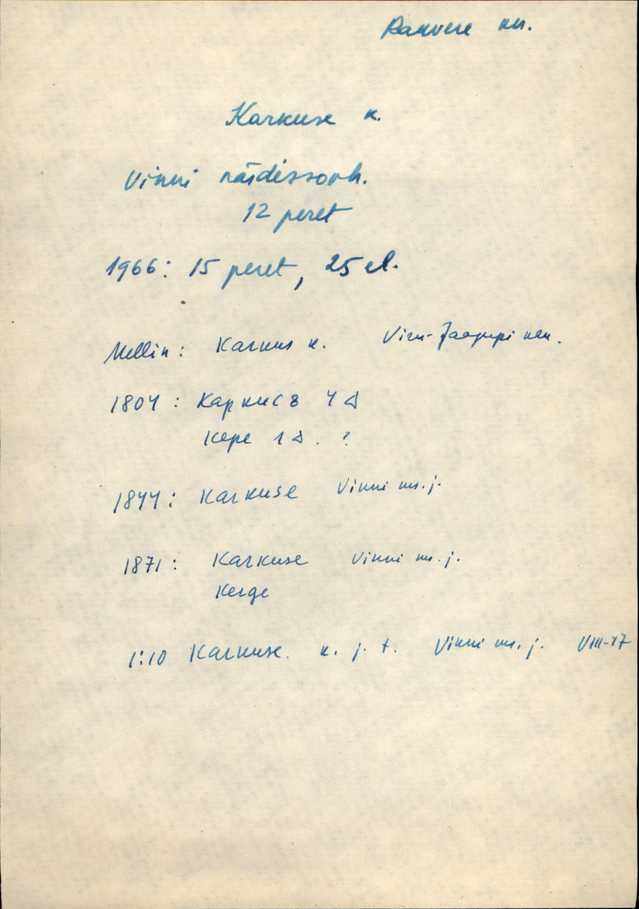 Rakvere
Karkuse k.
Vinni näidissovh.
12 peret
1966: 15 peret, 25 el.
Mellin: Karkus k. Viru-Jaagupi
1804: Каркусъ 4 Δ
Кере 1 Δ. ?
1844: Karkuse Vinni m. j.
1871: Karkuse Vinni m. j.
Kerge
1:10 Karkuse k. j. t. Vinni m. j. VIII-17